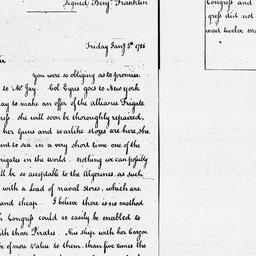 Signed Benj<sup>n</sup> Franklin
Friday Jan<sup>y</sup> 5<sup>th</sup> 1786
ir
you were so obliging as to promise
to Mr Jay. Col Eyres goes to New york
ay to make an offer of the Alliance Frigate
ress. she will soon be thoroughly repaired,
her Guns and warlike stores are here, she
ent to sea in a very short time one of the
rigates in the world. nothing we can possibly
ll be so acceptable to the Algerines, as such
with a load of naval stores, which are
and cheap. I believe there is no method
h Congress could so easily be enabled to
ith those Pirates. His ship with her Cargoe
be of more value to them, than five times the
Congress and
gress did not
want twelve me